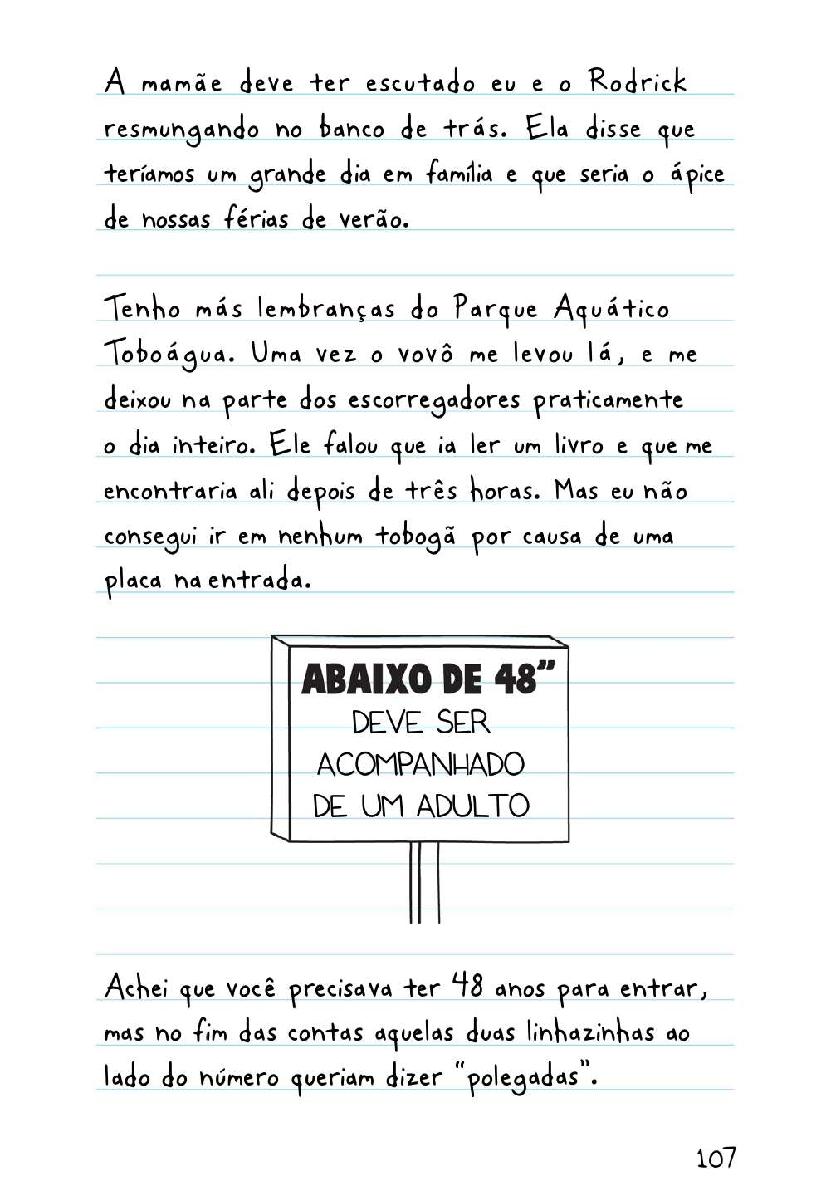 A mamãe deve ter escutado eu e o Rodrick
resmungando no banco de trás. Ela disse que
teríamos um grande dia em família e que seria o ápice
de nossas férias de verão.
Tenho más lembranças do Parque Aquático
Toboágua. Uma vez o vovô me levou lá, e me
deixou na parte dos escorregadores praticamente
o dia inteiro. Ele falou que ia ler um livro e que me
encontraria ali depois de três horas. Mas eu não
consegui ir em nenhum tobogã por causa de uma
placa na entrada.
ABAIXO DE 48”
DEVE SER
ACOMPANHADO
DE UM ADULTO
Achei que você precisava ter 48 anos para entrar,
mas no fim das contas aquelas duas linhazinhas ao
lado do número queriam dizer “polegadas”.
107